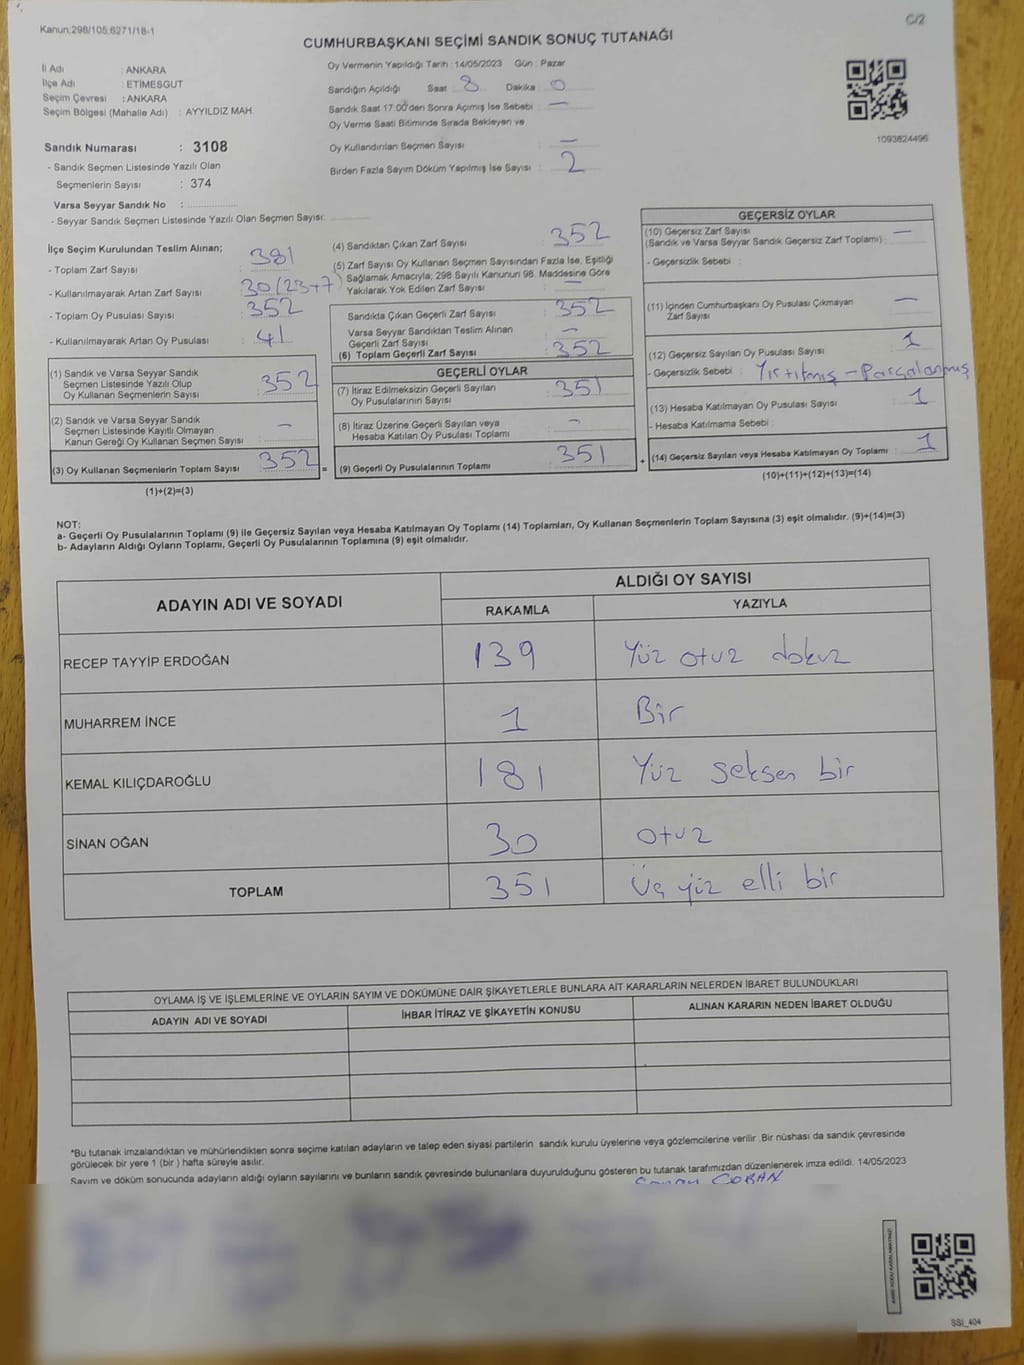 Kanun,298/105,6271/18-1
C/2
CUMHURBAŞKANI SEÇİMİ SANDIK SONUÇ TUTANAĞI
İl Adı : ANKARA
İlçe Adı : ETİMESGUT
Seçim Çevresi : ANKARA
Seçim Bölgesi (Mahalle Adı) : AYYILDIZ MAH.
Sandık Numarası : 3108
- Sandık Seçmen Listesinde Yazılı Olan
Seçmenlerin Sayısı : 374
Varsa Seyyar Sandık No : ..................
- Seyyar Sandık Seçmen Listesinde Yazılı Olan Seçmen Sayısı:
Oy Vermenin Yapıldığı Tarih : 14/05/2023 Gün : Pazar
Sandığın Açıldığı Saat 8 Dakika 0
Sandık Saat 17.00'den Sonra Açımış İse Sebebi : —
Oy Verme Saati Bitiminde Sırada Bekleyen ve
Oy Kullandırılan Seçmen Sayısı : —
Birden Fazla Sayım Döküm Yapılmış İse Sayısı : 2
1093824496
İlçe Seçim Kurulundan Teslim Alınan;
- Toplam Zarf Sayısı : 381
- Kullanılmayarak Artan Zarf Sayısı : 30 (23+7)
- Toplam Oy Pusulası Sayısı : 352
- Kullanılmayarak Artan Oy Pusulası : 41
(1) Sandık ve Varsa Seyyar Sandık
Seçmen Listesinde Yazılı Olup
Oy Kullanan Seçmenlerin Sayısı : 352
(2) Sandık ve Varsa Seyyar Sandık
Seçmen Listesinde Kayıtlı Olmayan
Kanun Gereği Oy Kullanan Seçmen Sayısı : —
(3) Oy Kullanan Seçmenlerin Toplam Sayısı : 352 =
(1)+(2)=(3)
(4) Sandıktan Çıkan Zarf Sayısı : 352
(5) Zarf Sayısı Oy Kullanan Seçmen Sayısından Fazla İse, Eşitliği
Sağlamak Amacıyla; 298 Sayılı Kanunun 98. Maddesine Göre
Yakılarak Yok Edilen Zarf Sayısı : —
Sandıkta Çıkan Geçerli Zarf Sayısı : 352
Varsa Seyyar Sandıktan Teslim Alınan
Geçerli Zarf Sayısı : —
(6) Toplam Geçerli Zarf Sayısı : 352
GEÇERLİ OYLAR
(7) İtiraz Edilmeksizin Geçerli Sayılan
Oy Pusulalarının Sayısı : 351
(8) İtiraz Üzerine Geçerli Sayılan veya
Hesaba Katılan Oy Pusulası Toplamı : —
(9) Geçerli Oy Pusulalarının Toplamı : 351 +
GEÇERSİZ OYLAR
(10) Geçersiz Zarf Sayısı —
(Sandık ve Varsa Seyyar Sandık Geçersiz Zarf Toplamı) :
- Geçersizlik Sebebi :
(11) İçinden Cumhurbaşkanı Oy Pusulası Çıkmayan
Zarf Sayısı : —
(12) Geçersiz Sayılan Oy Pusulası Sayısı : 1
- Geçersizlik Sebebi : Yırtılmış - Parçalanmış
(13) Hesaba Katılmayan Oy Pusulası Sayısı : 1
- Hesaba Katılmama Sebebi :
(14) Geçersiz Sayılan veya Hesaba Katılmayan Oy Toplamı : 1
(10)+(11)+(12)+(13)=(14)
NOT:
a- Geçerli Oy Pusulalarının Toplamı (9) ile Geçersiz Sayılan veya Hesaba Katılmayan Oy Toplamı (14) Toplamları, Oy Kullanan Seçmenlerin Toplam Sayısına (3) eşit olmalıdır. (9)+(14)=(3)
b- Adayların Aldığı Oyların Toplamı, Geçerli Oy Pusulalarının Toplamına (9) eşit olmalıdır.
ADAYIN ADI VE SOYADI ALDIĞI OY SAYISI
RAKAMLA YAZIYLA
RECEP TAYYİP ERDOĞAN 139 Yüz otuz dokuz
MUHARREM İNCE 1 Bir
KEMAL KILIÇDAROĞLU 181 Yüz seksen bir
SİNAN OĞAN 30 otuz
TOPLAM 351 Üç yüz elli bir
OYLAMA İŞ VE İŞLEMLERİNE VE OYLARIN SAYIM VE DÖKÜMÜNE DAİR ŞİKAYETLERLE BUNLARA AİT KARARLARIN NELERDEN İBARET BULUNDUKLARI
ADAYIN ADI VE SOYADI İHBAR İTİRAZ VE ŞİKAYETİN KONUSU ALINAN KARARIN NEDEN İBARET OLDUĞU
*Bu tutanak imzalandıktan ve mühürlendikten sonra seçime katılan adayların ve talep eden siyasi partilerin sandık kurulu üyelerine veya gözlemcilerine verilir .Bir nüshası da sandık çevresinde
görülecek bir yere 1 (bir ) hafta süreyle asılır.
Sayım ve döküm sonucunda adayların aldığı oyların sayılarını ve bunların sandık çevresinde bulunanlara duyurulduğunu gösteren bu tutanak tarafımızdan düzenlenerek imza edildi. 14/05/2023
ÇOBAN
SSI_404